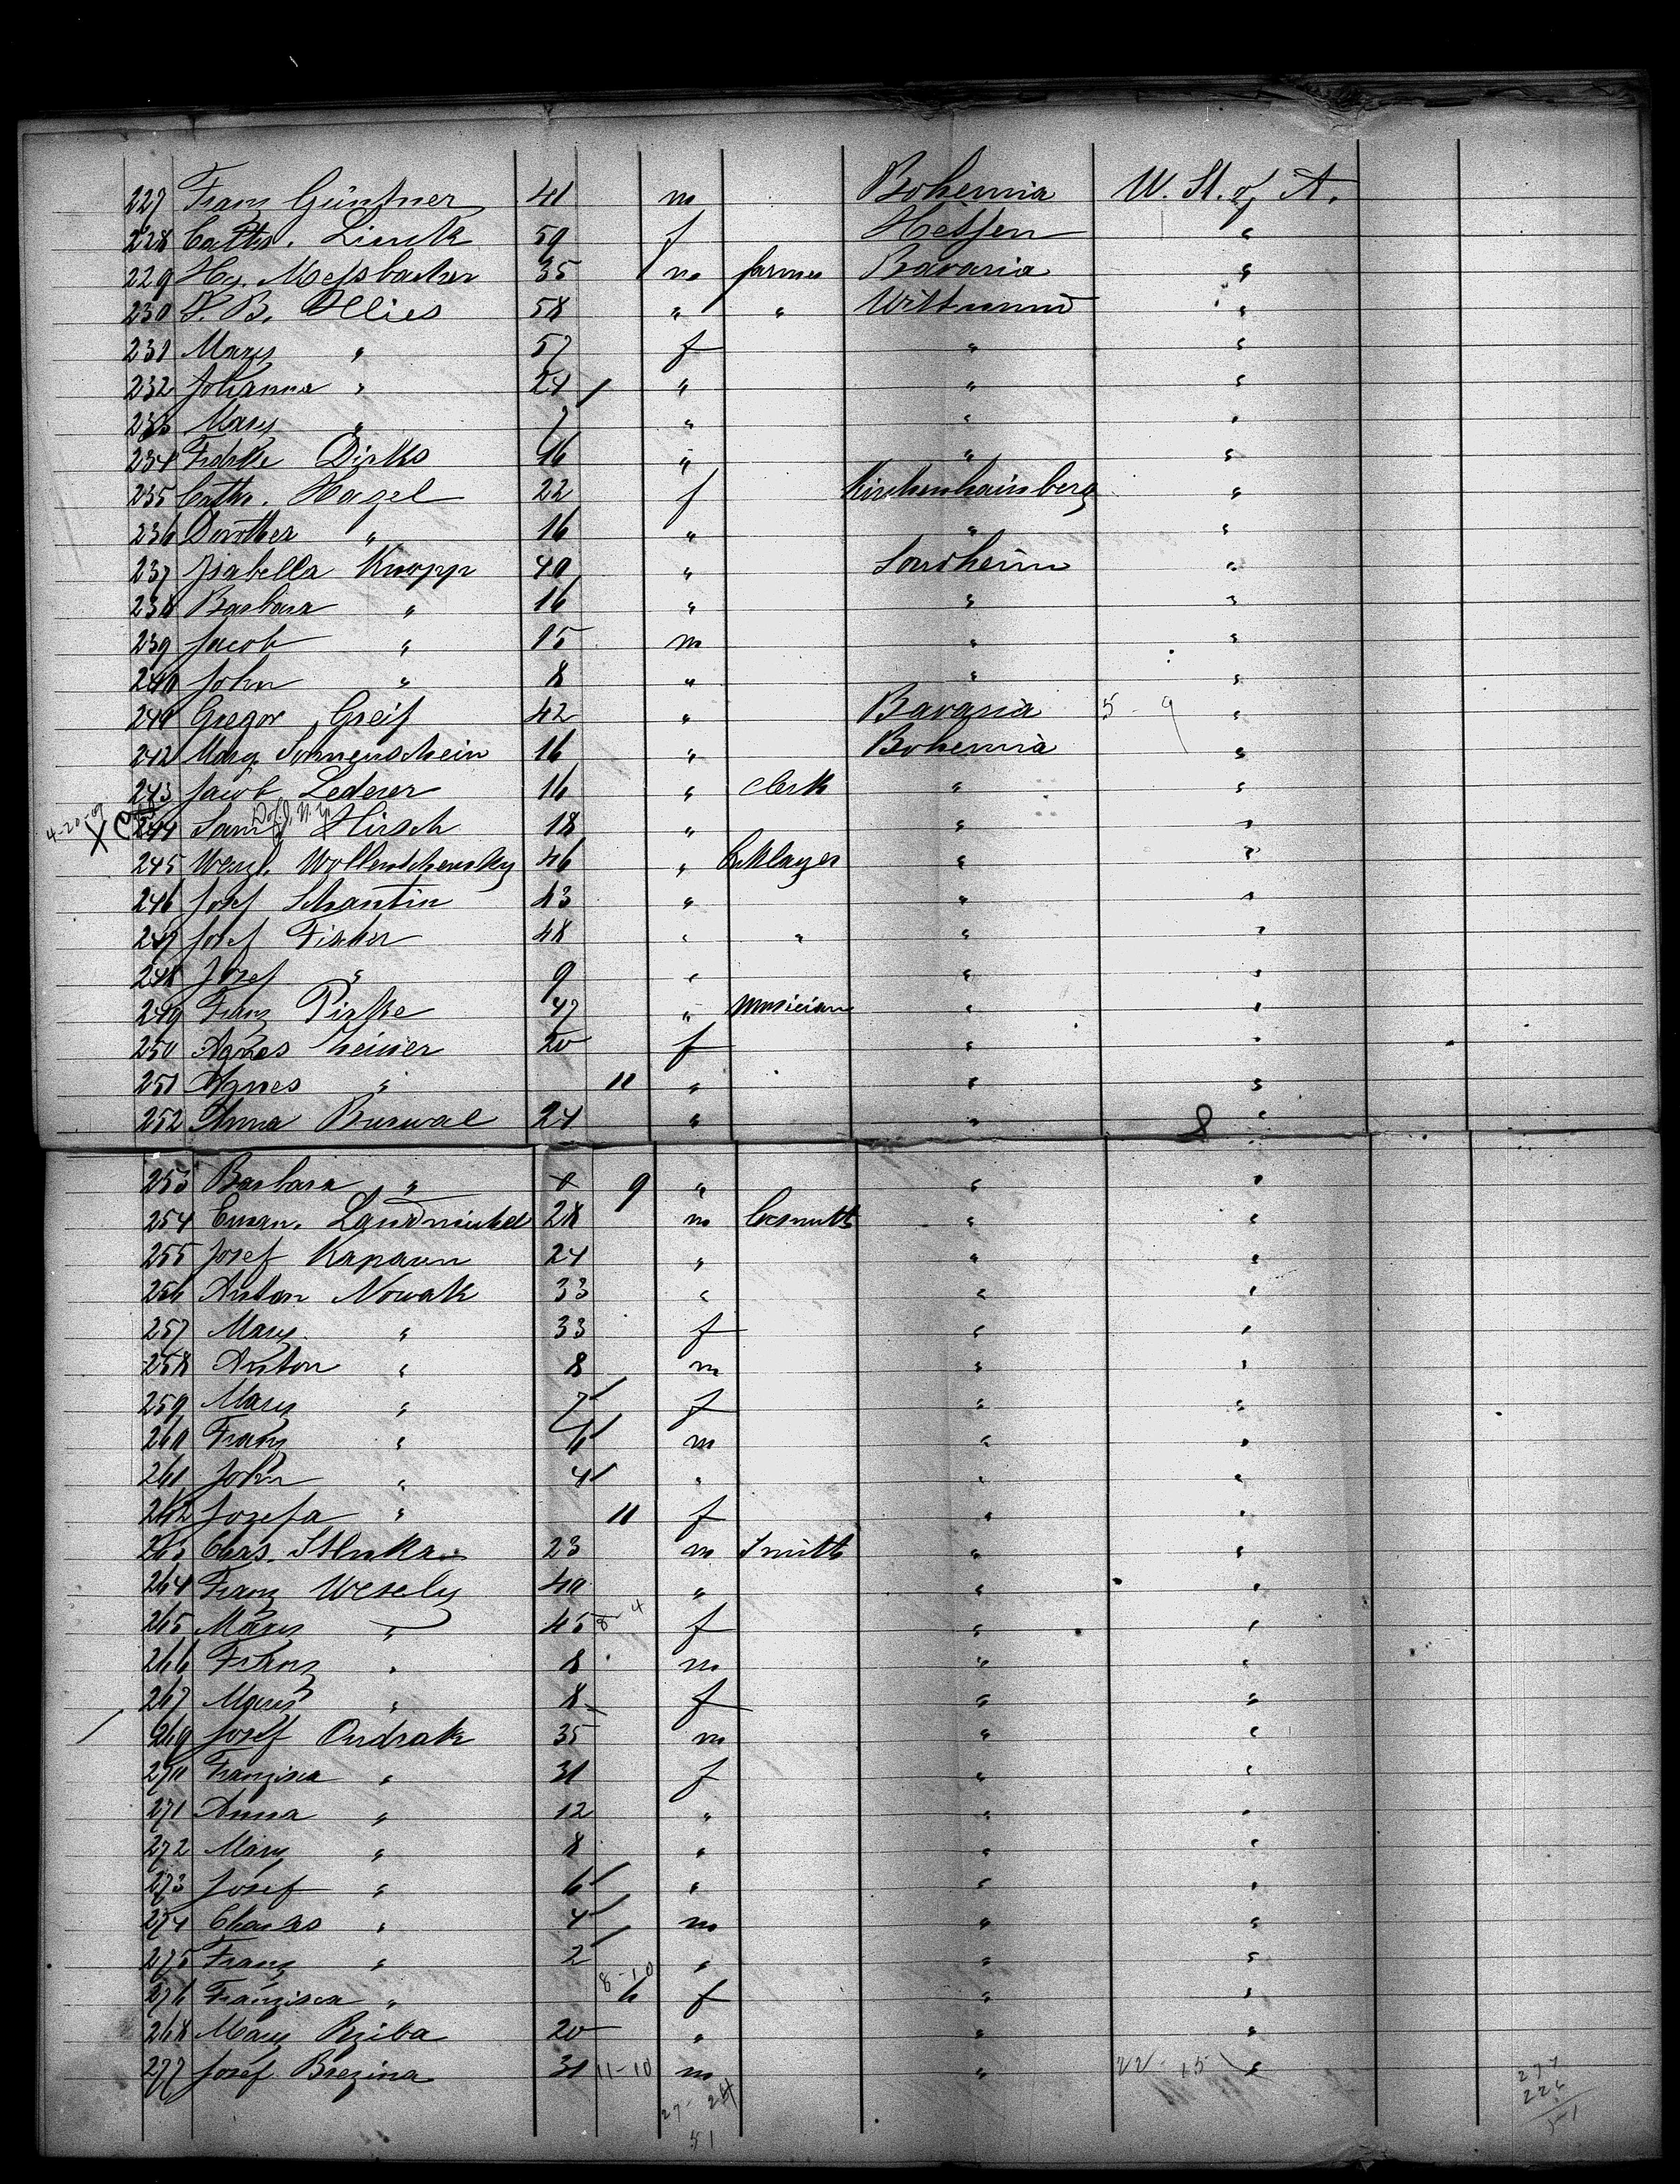 227 Franz Güntner 41 m Bohemia U. St. of A.
228 Cath. Linck 59 f Hessen "
229 Hy. Messbacher 35 m farmer Bavaria "
230 F. B. Ulies 58 " " Wittmund "
231 Mary " 57 f " "
232 Johanna " 24 " " "
233 Mary " 7 " " "
234 Dirks 16 " " "
235 Cath. Hagel 22 f Kirchenhainberg "
236 Dorothea " 16 " " "
237 Isabella Knopp 40 " Sondheim "
238 Barbara " 16 " " "
239 Jacob " 15 m " "
240 John " 8 " " "
241 Gregor Greif 42 " Bavaria 5 - 9 "
242 Marg. Sonnenschein 16 " Bohemia "
243 Jacob Lederer 16 " clerk " "
4-20-09 X 244 Saml. Hirsch 18 " " "
245 Wenzl. 46 " bricklayer " "
246 Josef Schantin 43 " " "
247 Josef Fischer 48 " " " "
248 Josef " 9 " " "
249 Franz Pirke 47 " musician " "
250 Agnes 20 f " "
251 Agnes " 11 " " "
252 Anna Buswal 24 " " "
253 Barbara " 9 " " "
254 Eman. 28 m " "
255 Josef Kapaun 24 " " "
256 Anton Nowak 33 " " "
257 Mary " 33 f " "
258 Anton " 8 m " "
259 Mary " 7 f " "
260 Franz " 6 m " "
261 John " 4 " " "
262 Josefa " 11 f " "
263 Chas. 23 m Smith " "
264 Franz Wesely 40 " " "
265 Mary " 45 8 4 f " "
266 Franz " 8 m " "
267 Mary " 8 f " "
269 Josef Ondrak 35 m " "
270 Franzisca " 31 f " "
271 Anna " 12 " " "
272 Mary " 8 " " "
273 Josef " 6 " " "
274 Charles " 4 m " "
275 Franz " 2 " " "
276 Franzisca " 8-10 6 f " "
268 Mary Rziba 20 " " "
277 Josef Brezina 31 11-10 m " 22 - 15 "
27 - 24
51
277
226
51